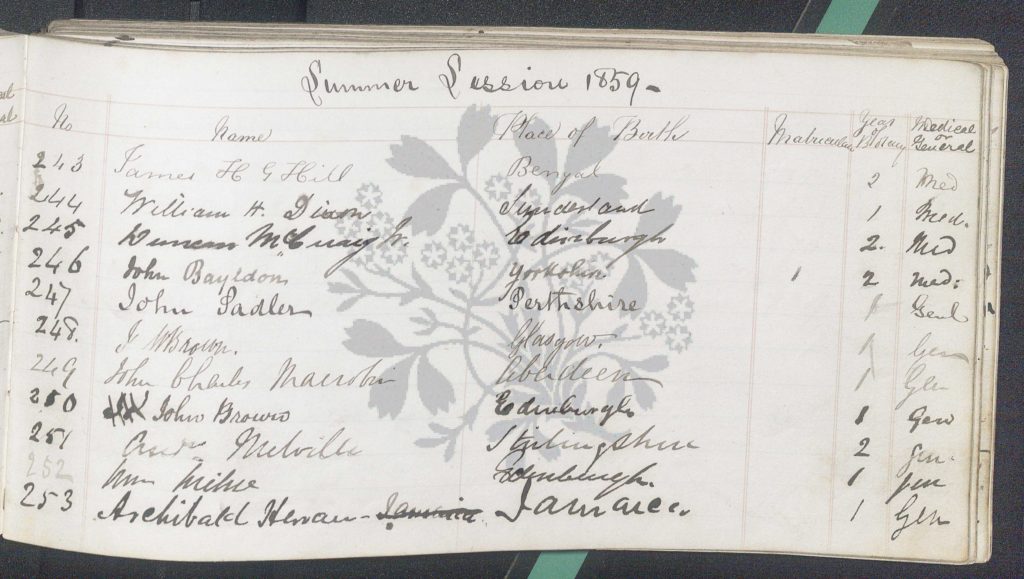 Summer Session 1859-
No Name Place of Birth Matriculan Years of Botany Medical or General
243 James H G Hill Bengal 2 Med
244 William H. Dixon Sunderland 1 Med.
245 Duncan McCuaig Jr. Edinburgh 2. Med
246 John Bayeldon Yorkshire 1 2 Med:
247 John Sadler Perthshire 1 Genl
248. J Brown. Glasgow. 1 Gen
249 John Charles Macrobin Aberdeen 1 Gen
250 John Brown Edinburgh 1 Gen
251 Melville Stirlingshire 2 Gen.
252 Wm Milne Edinburgh. 1 Gen
253 Archibald Hewan - Jamaica. Jamaica. 1 Gen